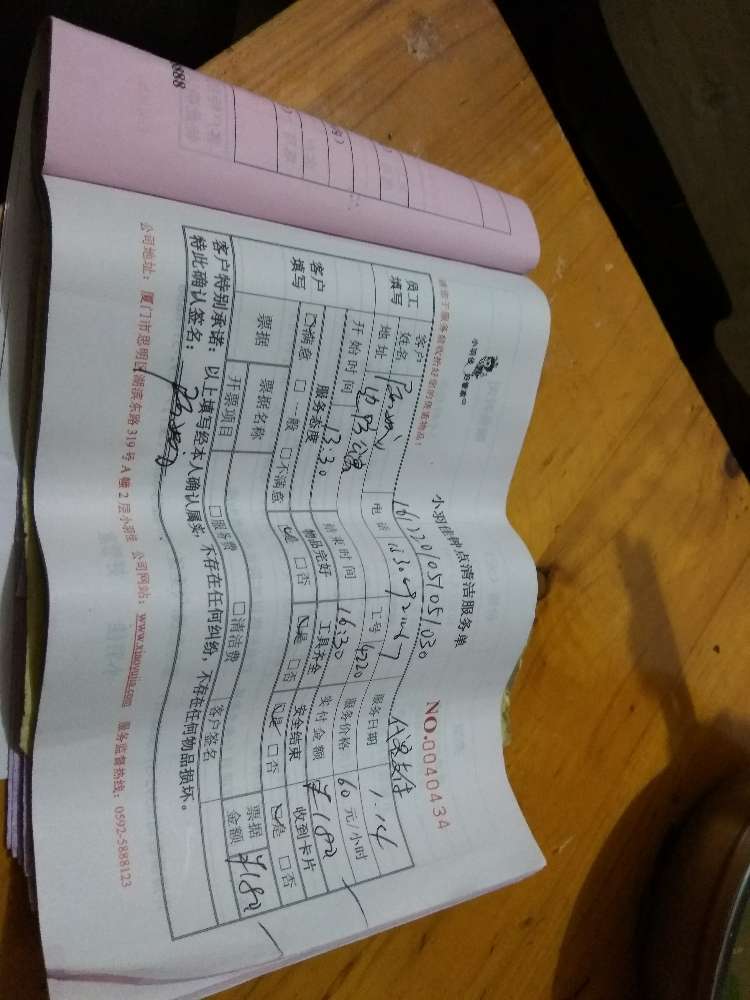 小羽佳 月嫂家中
小羽佳钟点清洁服务单
NO.0040434
1612201051051030
代果支付
请您于服务前收拾好您的贵重物品:
员工填写
客户姓名
电话
工号 4220
服务日期 1.14
地址
服务价格 60元/小时
开始时间 13:30
结束时间 16:30
实付金额 ¥180
客户填写
服务态度
物品完好
工具齐全
安全结束
收到卡片
☑满意 □一般 □不满意
☑是 □否
☑是 □否
☑是 □否
☑是 □否
票据
票据名称
□服务费
□清洁费
客户签名
票据金额 ¥180
开票项目
客户特别承诺:以上填写经本人确认属实,不存在任何纠纷,不存在任何物品损坏。
特此确认签名:
公司地址:厦门市思明区湖滨东路319号A幢2层小羽佳 公司网站:www.xiaoyujia.com 服务监督热线:0592-5888123